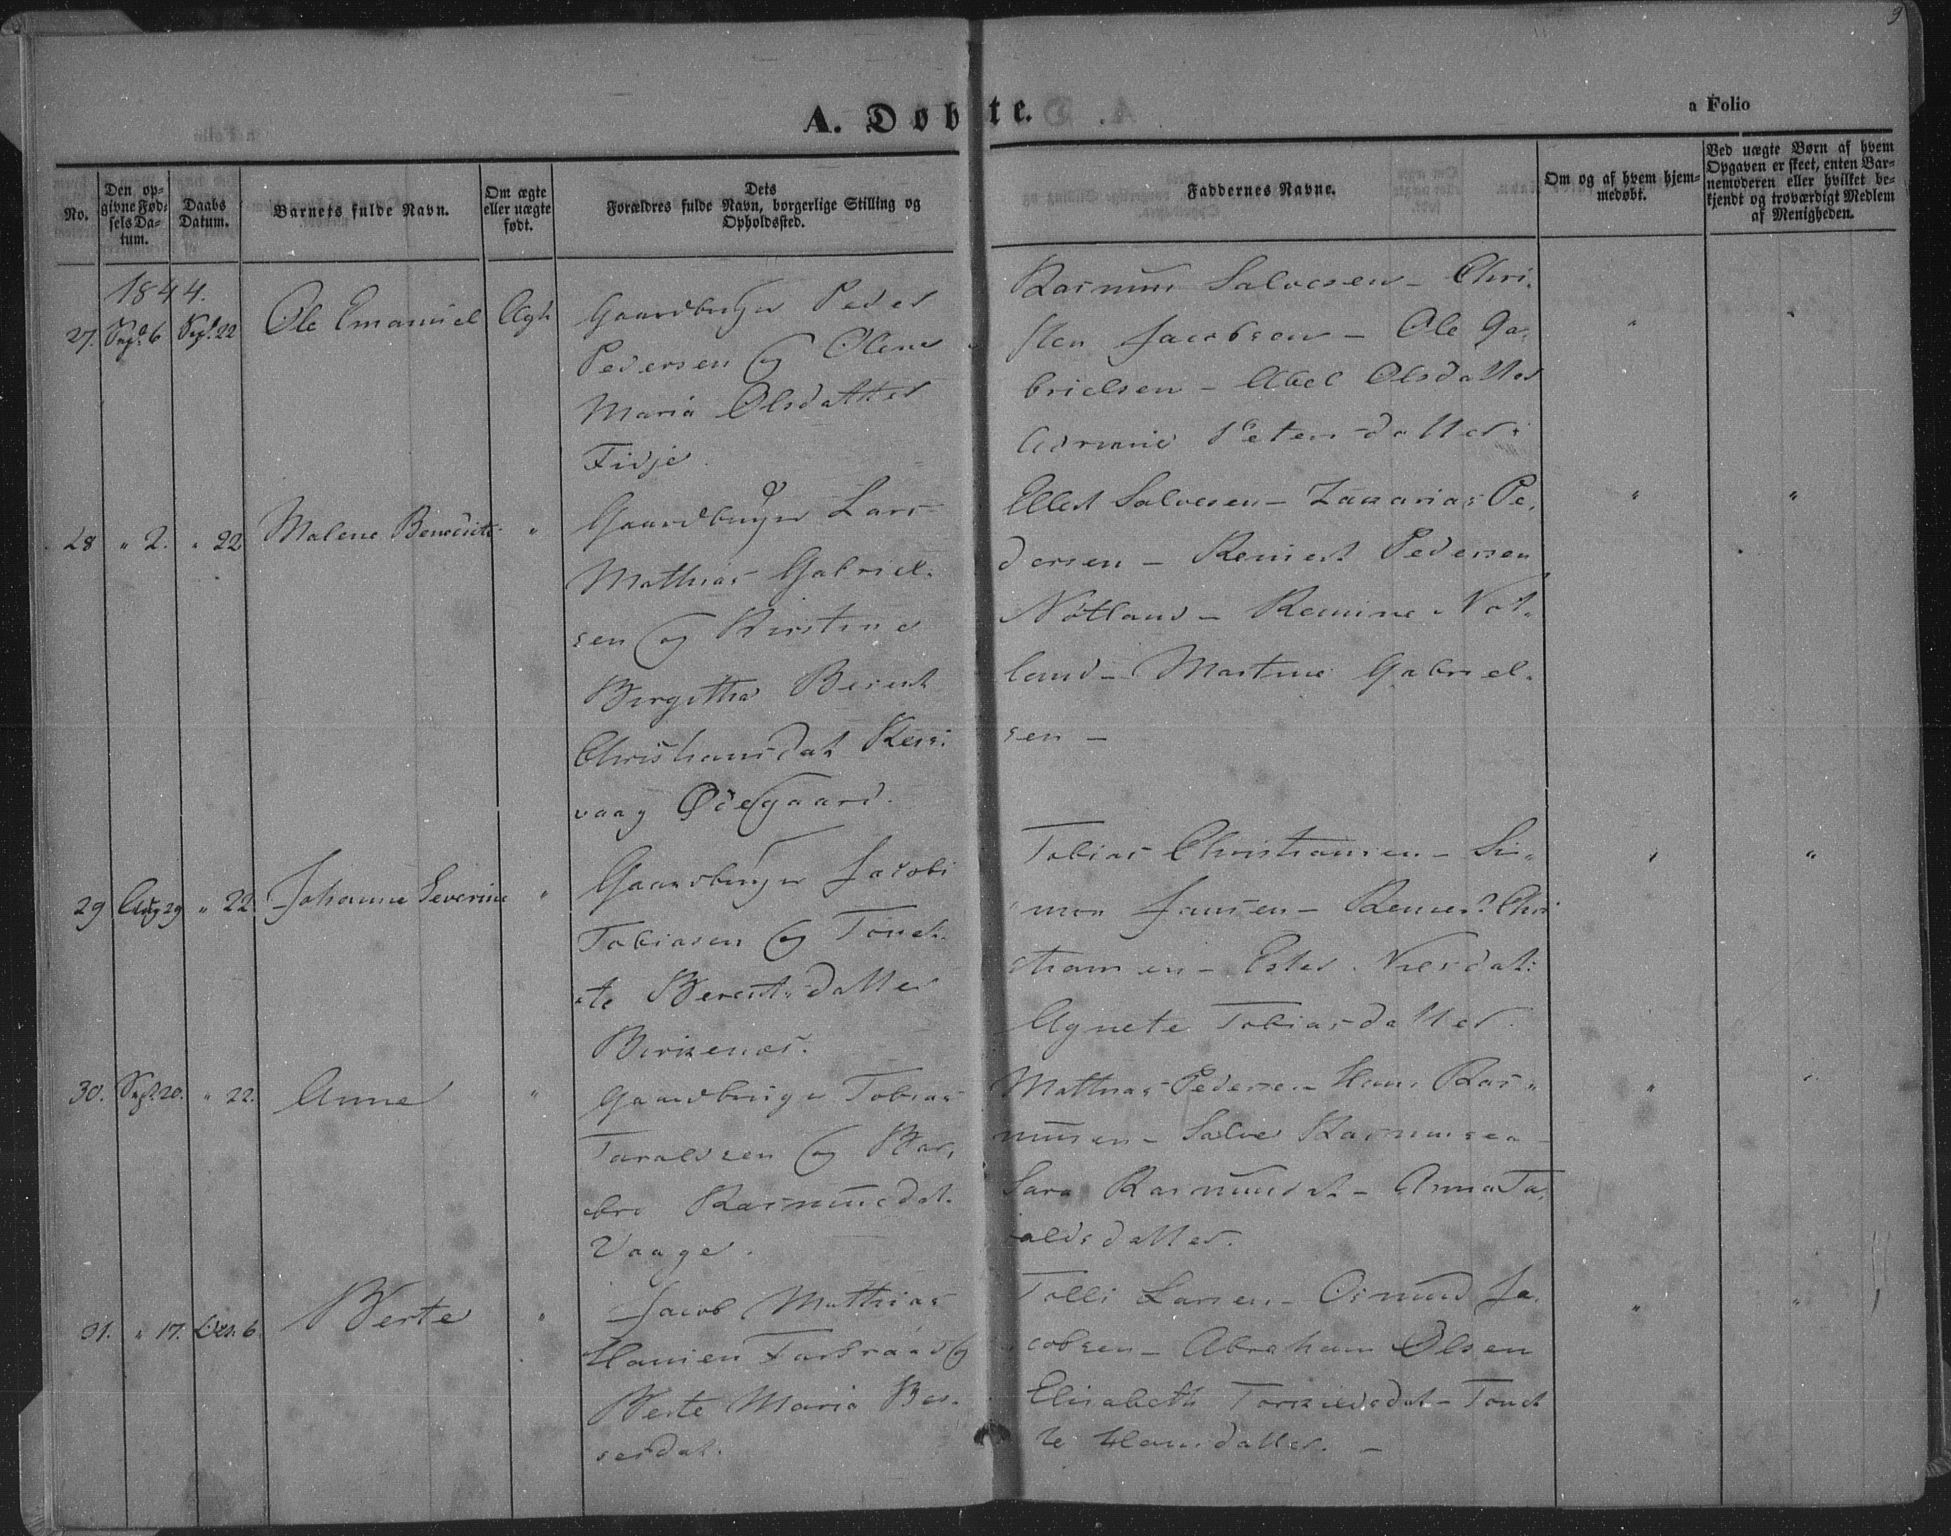 9
A. Døbte.
a Folio
No.
Den opgivne Fødsels Datum.
Daabs Datum.
Barnets fulde Navn.
Om ægte eller uægte født.
Dets Forældres fulde Navn, borgerlige Stilling og Opholdssted.
Faddernes Navne.
Om og af hvem hjemmedøbt.
Ved uægte Børn af hvem Opgaven er skeet, enten Barnemoderen eller hvilket bekjendt og troværdigt Medlem af Menigheden.
1844.
27. Sept. 6 Sept. 22 Ole Emanuel Ægt.
Gaardbruger Peder
Pedersen og Olene
Maria Olsdatter
Fidje.
Rasmus Salvesen – Chri-
sten Jacobsen – Ole Ga-
brielsen – Abel Olsdatter
Petersdatter.
" "
28 " 2. " 22 Malene Benedicte "
Gaardbruger Lars
Mathias Gabriel-
sen og Kirstine
Birgitha Berent
Christiansdat.
vaag Ødegaard.
Ellert Salvesen – Zacarias Pe-
dersen – Reinert Pedersen
Nøtland – Remine Not-
land – Martine Gabriel-
sen –
" "
29 Aug 29 " 22. Johanne Severine "
Gaardbruger Jacob
Tobiasen og Tonet-
te Berentsdatter
Birkenes.
Tobias Christiansen – Si-
mon Jansen – Chri
stiansen – Ester Nilsdat:
Agnete Tobiasdatter.
" "
30. Sept. 20. " 22. Anne "
Gaardbruger Tobias
Taraldsen og Bar-
bro Rasmusdat.
Vaage.
Mathias Pedersen – Hans Ras-
musen – Salve Rasmusen –
Sara Rasmusdat – Anna Ta-
raldsdatter.
" "
31. " 17. 6. Berte "
Jacob Mathias
Hansen og
Berte Maria
serdat.
Tolli Larsen – Osmund Ja-
cobsen – Abraham Olsen
Elisabeth Torkildsdat – Tonet
te Hansdatter. –
" "